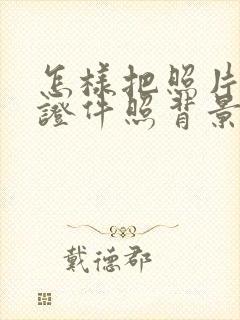 怎樣把照片
證件照背景
戴德郡